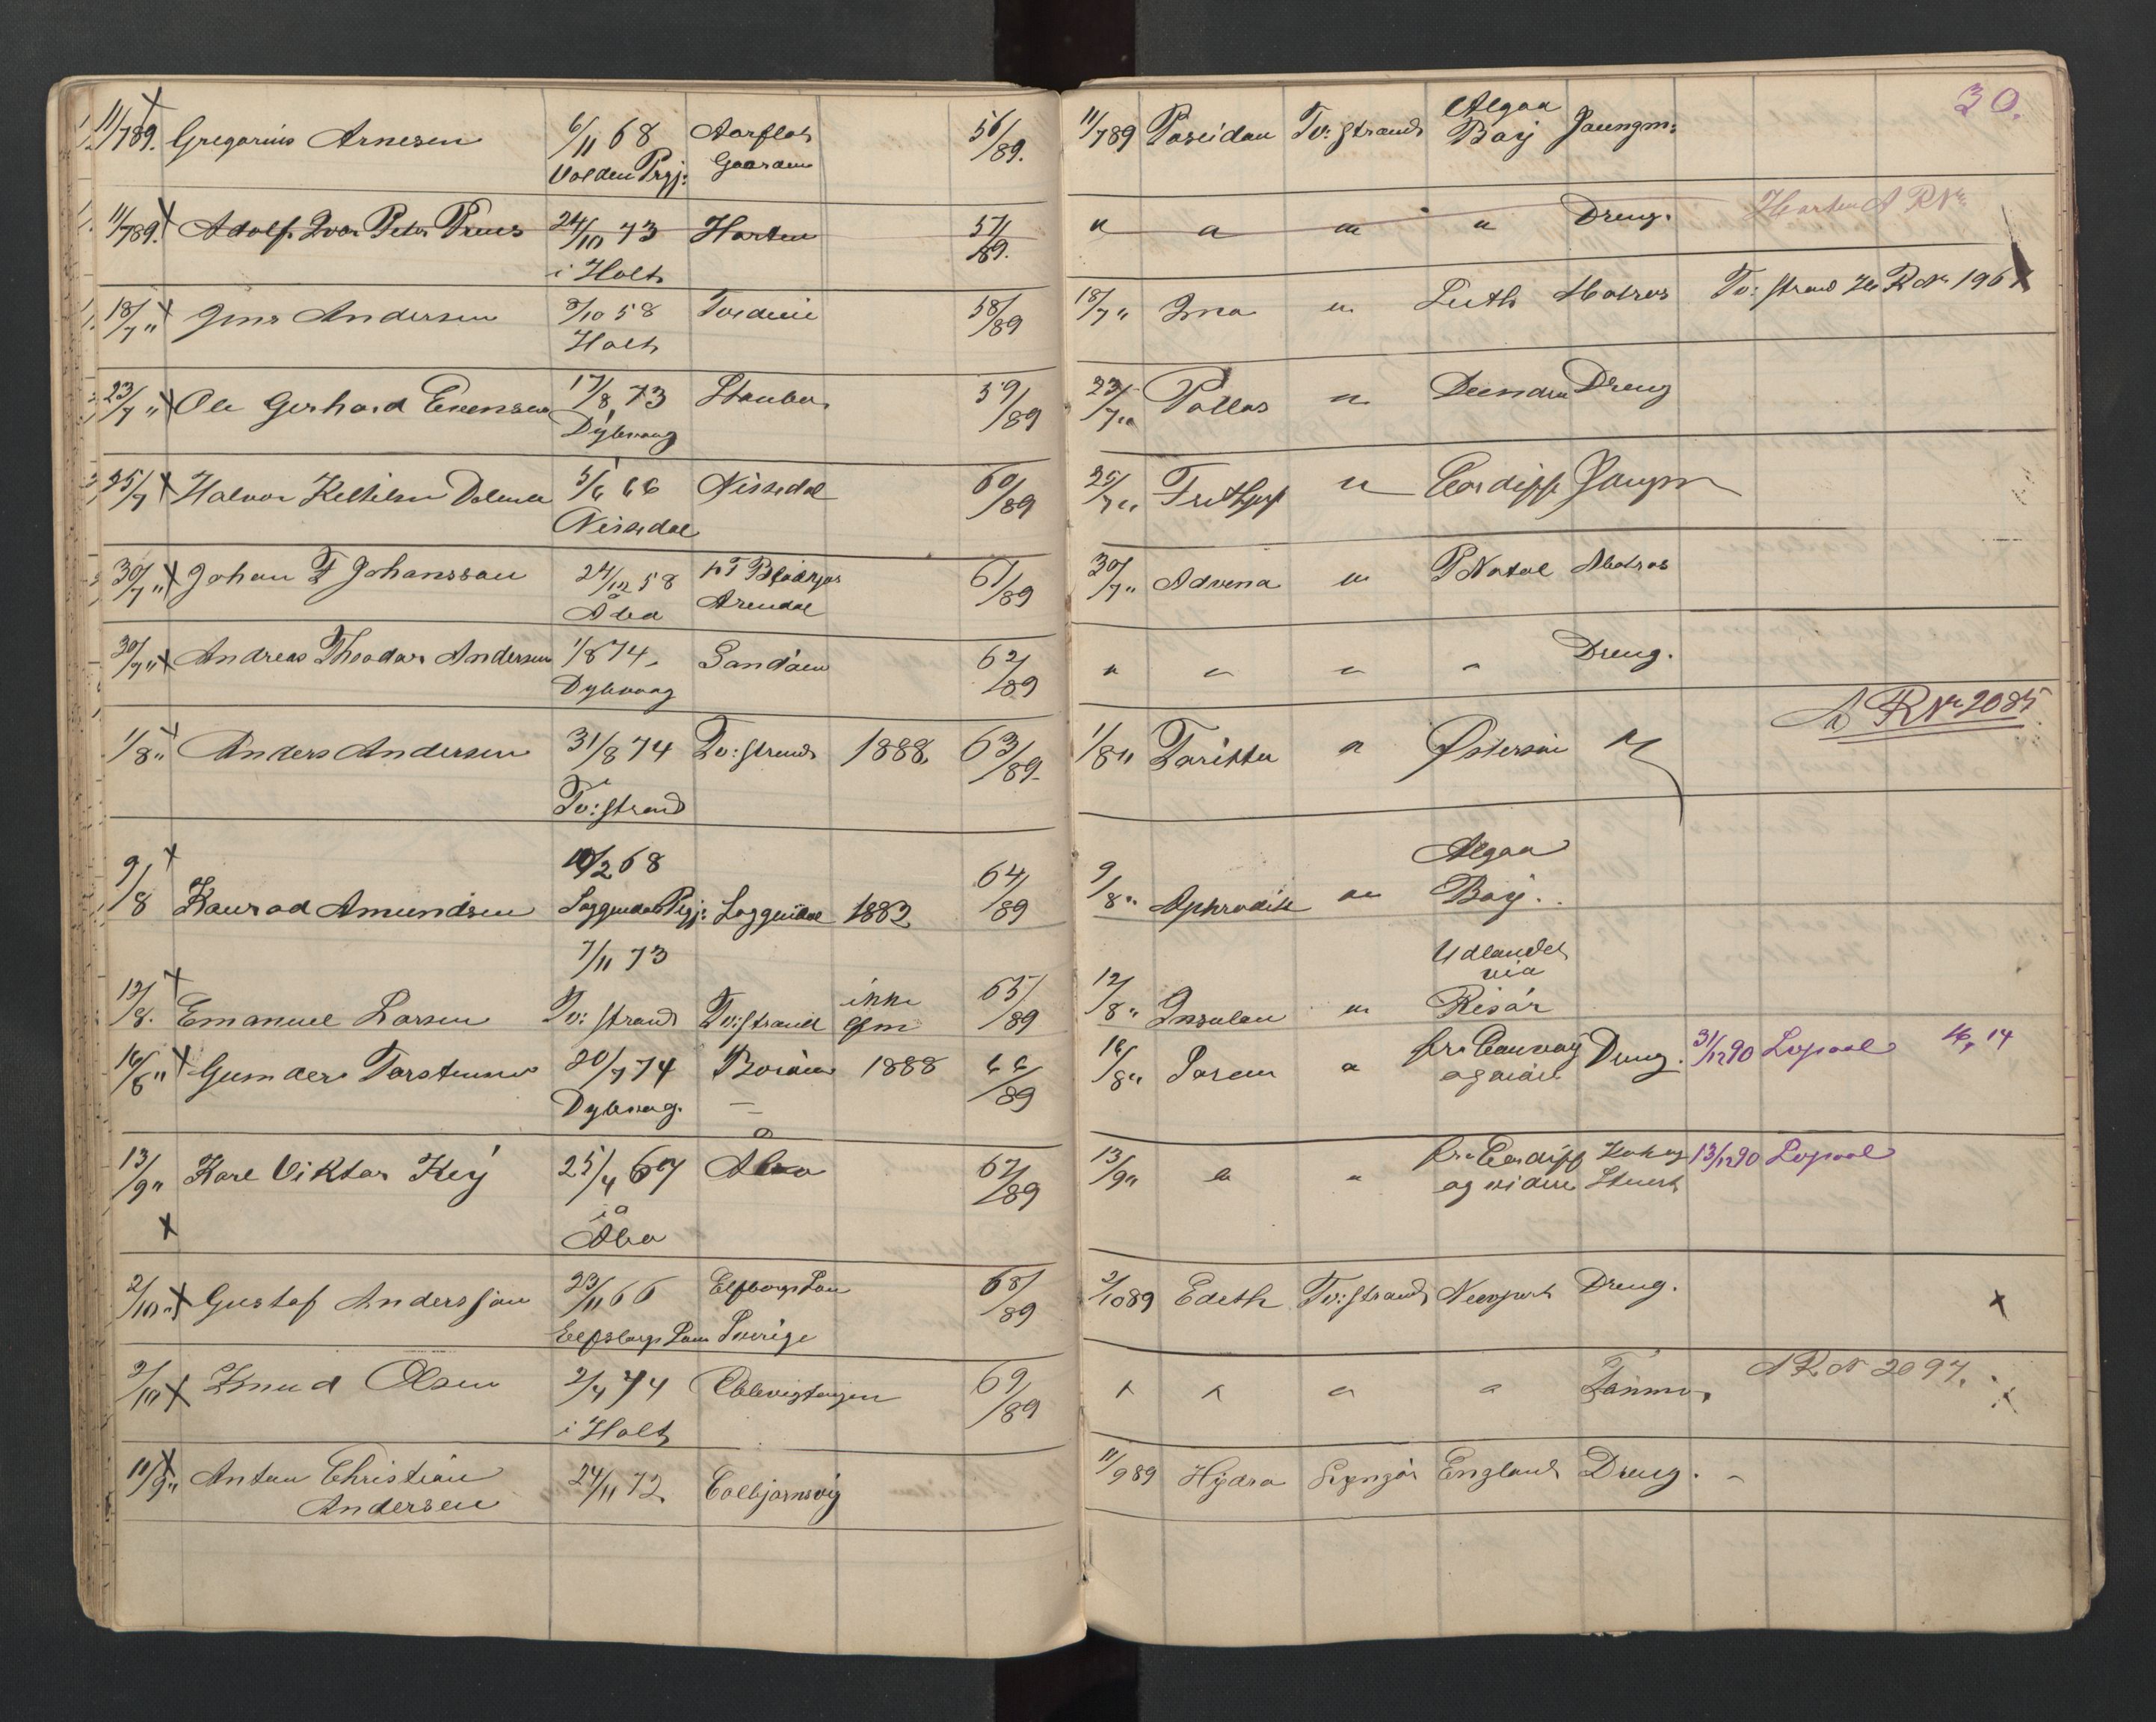 30.
11/7 89. Gregorius Arnesen 6/11 68 Aarflot 56/89. 11/7 89 Poseidon Tv: strand Algoa Bay Jungm:
Volden Prgj: Gaarden
11/7 89. Adolf Ivar Peter Preus 24/10 73 Horten 57/89. " " " " Dreng. Horten A R No
i Holt
18/7 " Jens Andersen 8/10 58 58/89 18/7 " Ino " Leith Matros Tv: strand R No 196
Holt
23/7 " Ole Gerhard Evensen 17/8 73 Staubø 59/89 23/7 " Pallas " Dreng
Dybvaag
25/7 Halvor Keltilsen 5/6 66 Nissedal 60/89 25/7 " Frithjof " Cardiff Jungm
Nissedal
30/7 " Johan F Johansson 24/12 58 61/89 30/7 " Advena " P Natal Matros
Åbo Arendal
30/7 " Andreas Theodor Andersen 1/8 74 Sandøen 62/89 " " " " Dreng.
Dybvaag
A R No 2085
1/8 " Anders Andersen 31/8 74 Tv: strand 1888 63/89. 1/8 " " Østersøn "
Tv: strand
10/2 68 Algoa
9/8 Konrad Amundsen Soggendals Prgj: Soggendal 1882 64/89 9/8 " Aphrodite " Bay.
7/11 73 Udlandet via
12/8. Emanuel Larsen Tv: strand Tv: strand ikke 65/89 12/8 " Insulan " Risør
16/8 " Gunder Torstensen 20/7 74 Borøen 1888 66/89 16/8 " " fra Conway Dreng. 31/12 90 Lpool 16, 14
Dybvaag. og videre
13/9 " Karl Viktor Key 25/4 67 Åbo 67/89 13/9 " " " fra Cardiff Kok og 13/12 90 Lpool
i Åbo og videre Stuert
2/10 " Gustaf Andersson 23/11 66 Elfborgs Län 68/89 2/10 89 Edeth Tv: strand Newport Dreng.
Elfsborgs Län Sverige
2/10 Knud Olsen 2/4 74 69/89 " " " " Tømm. A R No 2097.
i Holt
11/9 " Anton Christian 24/11 72 Colbjørnsvig 11/9 89 Hydra Lyngør England Dreng.
Andersen